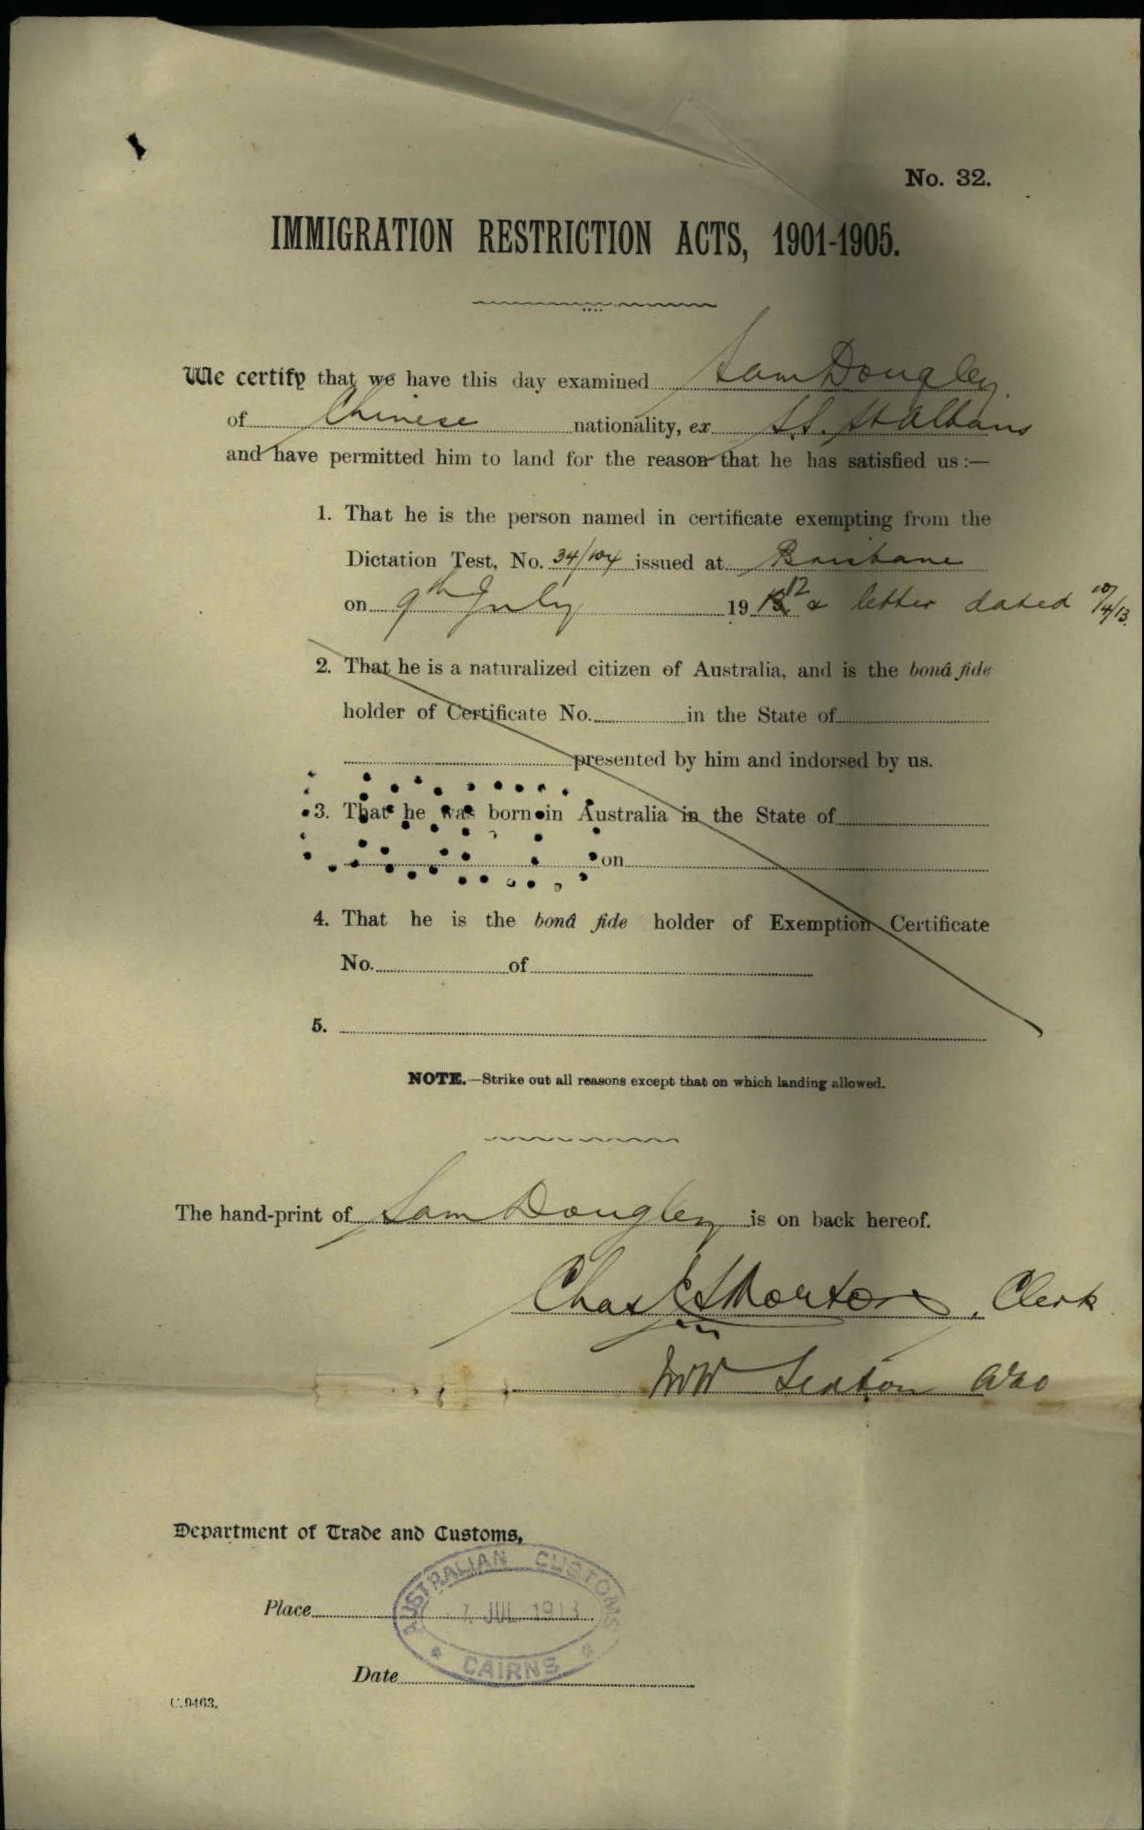 No. 32.
IMMIGRATION RESTRICTION ACTS, 1901-1905.
We certify that we have this day examined Sam Dougley
of Chinese nationality, ex S.S. St Albans
and have permitted him to land for the reason that he has satisfied us :—
1. That he is the person named in certificate exempting from the
Dictation Test, No. 34/104 issued at Brisbane
on 9th July 1912 & letter dated 10/4/13.
2. That he is a naturalized citizen of Australia, and is the bonâ fide
holder of Certificate No. in the State of
presented by him and indorsed by us.
3. That he was born in Australia in the State of
on
4. That he is the bonâ fide holder of Exemption Certificate
No. of
5.
NOTE.—Strike out all reasons except that on which landing allowed.
The hand-print of Sam Dougley is on back hereof.
Chas Morton, Clerk
Sexton
Department of Trade and Customs,
Place
AUSTRALIAN CUSTOMS
7 JUL 1913
CAIRNS
Date
C.9463.